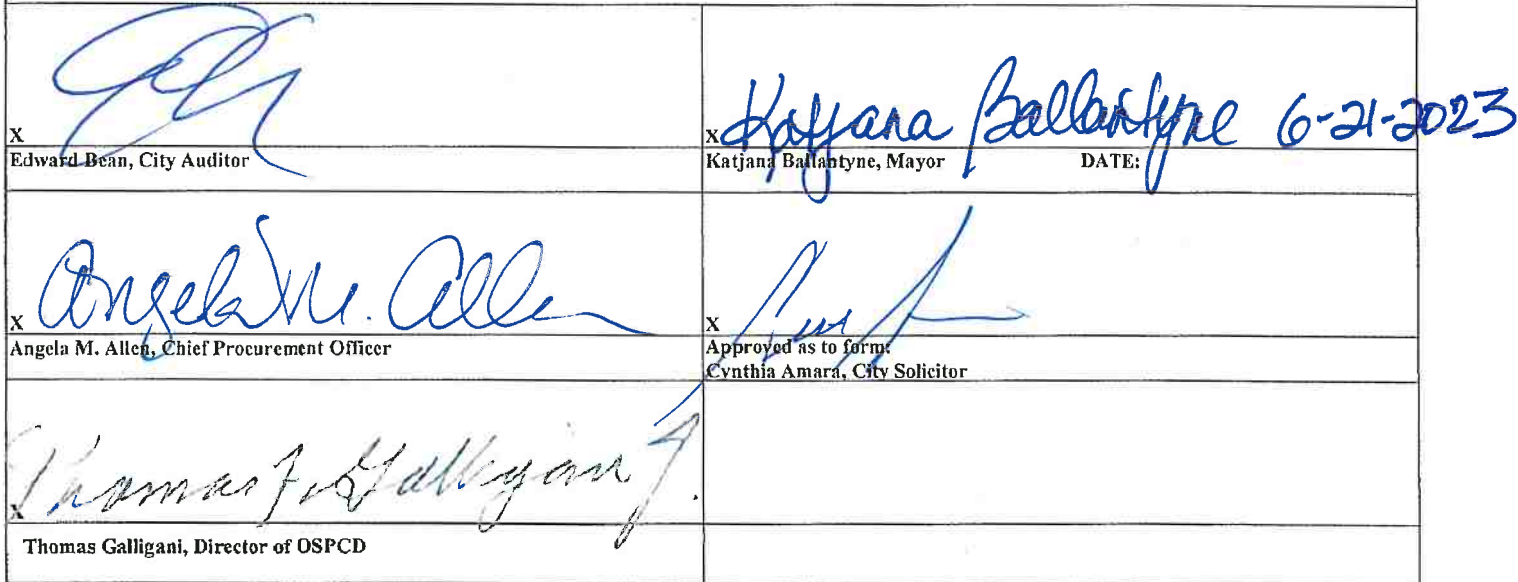 Katjana Ballantyne 6-21-2023
X
X
Edward Bean, City Auditor
Katjana Ballantyne, Mayor DATE:
Angela M. Allen
X
X
Angela M. Allen, Chief Procurement Officer
Approved as to form:
Cynthia Amara, City Solicitor
Thomas F. Galligani Jr.
X
Thomas Galligani, Director of OSPCD